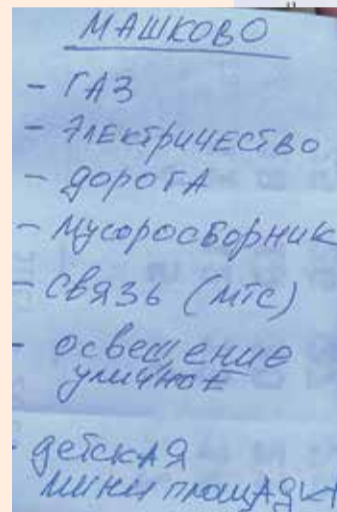 МАШКОВО
- ГАЗ
- ЭЛЕКТРИЧЕСТВО
- ДОРОГА
- МУСОРОСБОРНИК
- СВЯЗЬ (МТС)
- ОСВЕЩЕНИЕ
УЛИЧНОЕ
- ДЕТСКАЯ
МИНИ ПЛОЩАДКА